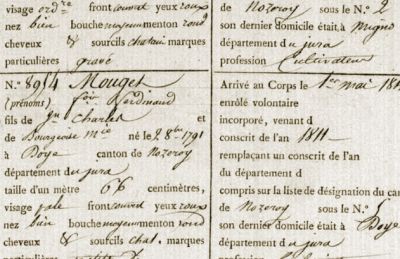 visage ord.re front couvert yeux roux
nez bien bouche moyenne menton rond
cheveux & sourcils chatain marques
particulières gravé
de Nozeroy sous le N.° 2
son dernier domicile était à Migno
département du jura
profession Cultivateur
N.° 8954 Mouget
(prénoms) fois Ferdinand
fils de Charles et
de Bourgeoise M.ie né le 2 8bre 1791
à Doye canton de Nozeroy
département du jura
taille d'un mètre 66 centimètres,
visage pale front couvert yeux roux
nez bien bouche moyenne menton rond
cheveux & sourcils chat. marques
Arrivé au Corps le 1er mai 181
enrôlé volontaire
incorporé, venant d
conscrit de l'an 1811
remplaçant un conscrit de l'an
du département d
compris sur la liste de désignation du can
de Nozeroy sous le N.°
son dernier domicile était à Doye
département du jura